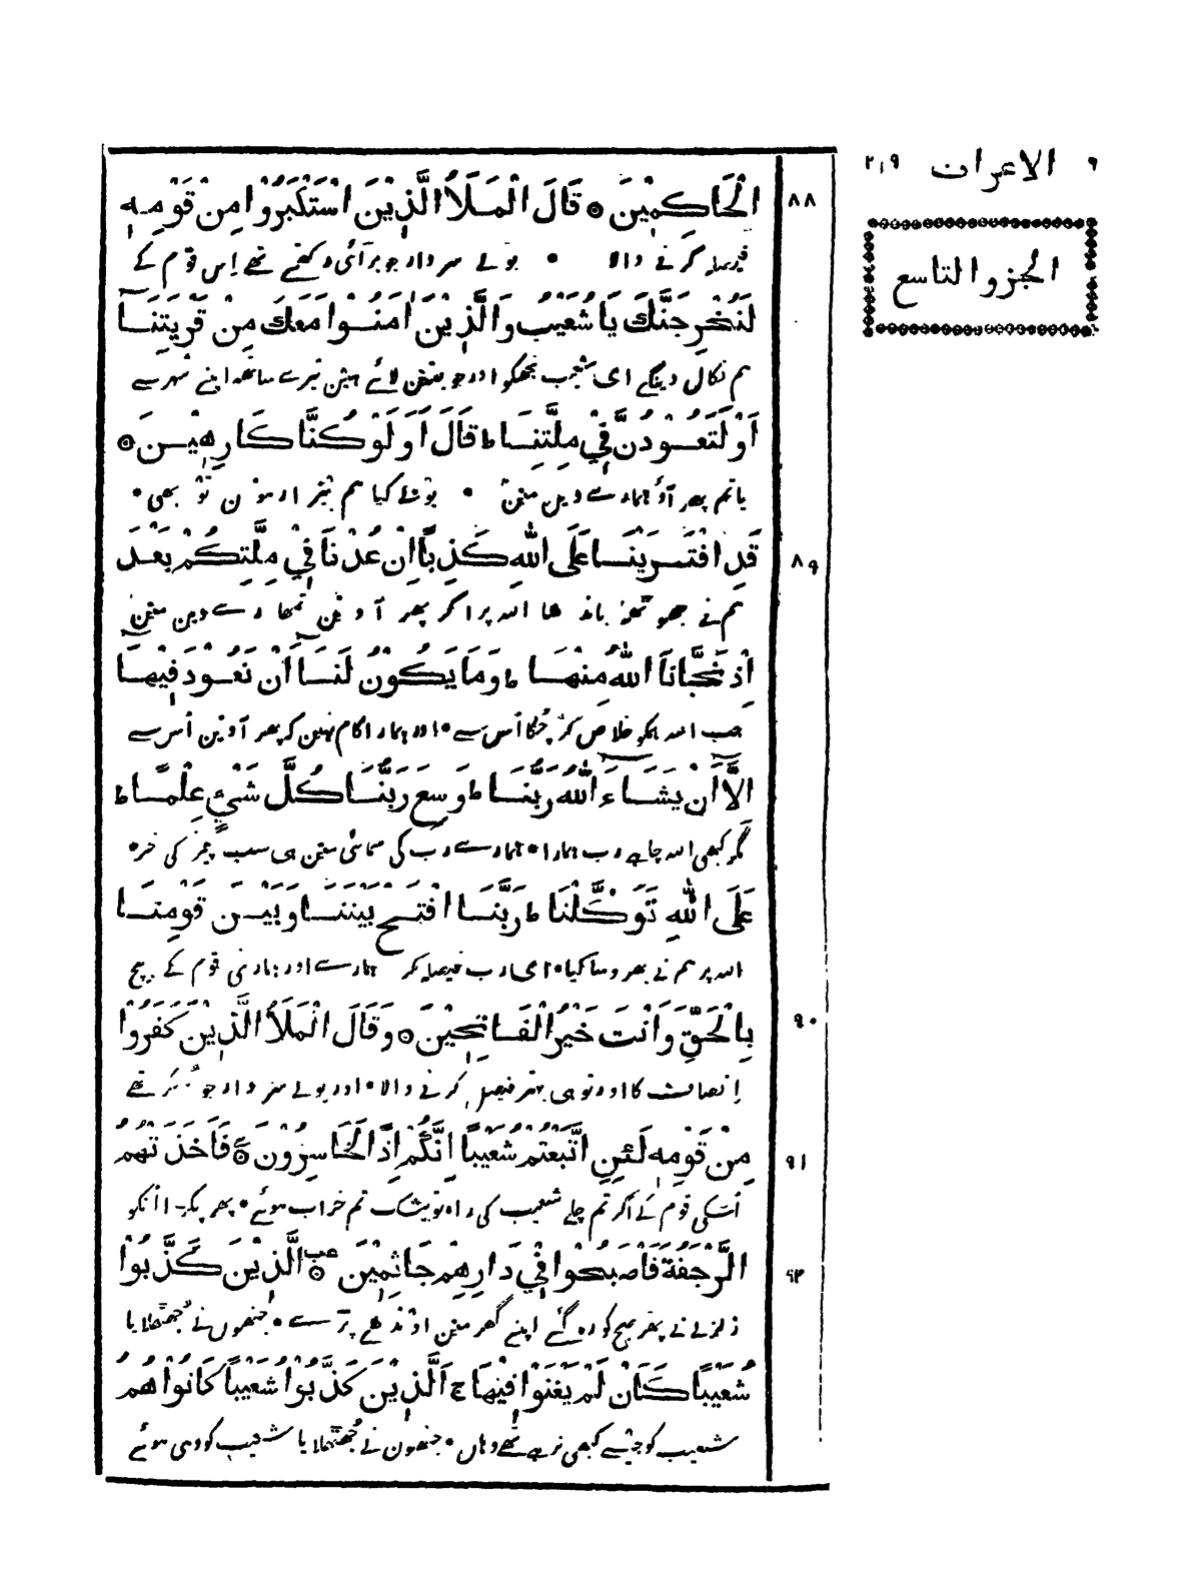 ٩ الاعراف ٢٠٩
الجزو التاسع
٨٨
الْحَاكِمِيْنَ ۝ قَالَ الْمَلَاُ الَّذِيْنَ اسْتَكْبَرُوْا مِنْ قَوْمِهٖ
فیصلہ کرنے والا • بولے سردار جو برآئی رکھتے تھے اِس قوم کے
لَنُخْرِجَنَّكَ يَا شُعَيْبُ وَالَّذِيْنَ اٰمَنُوْا مَعَكَ مِنْ قَرْيَتِنَا
ہم نکال دینگے ای شعیب تجھکو اور جو یقین لائے ہین تیرے ساتھہ اپنے شہر سے
اَوْ لَتَعُوْدُنَّ فِيْ مِلَّتِنَا ط قَالَ اَوَلَوْ كُنَّا كَارِهِيْنَ ۝
یا تم پھر آؤ ہمارے دین مین • بولے کیا ہم بیزار ہون تو بھی •
٨٩
قَدِ افْتَرَيْنَا عَلَى اللّٰهِ كَذِبًا اِنْ عُدْنَا فِيْ مِلَّتِكُمْ بَعْدَ
ہم نے جھوتھہ باندھا اللہ پر اگر پھر آوین تمھارے دین مین
اِذْ نَجَّانَا اللّٰهُ مِنْهَا ط وَمَا يَكُوْنُ لَنَا اَنْ نَعُوْدَ فِيْهَا
جب اللہ ہمکو خلاص کر چکا اُس سے • اور ہمارا کام نہین کہ پھر آوین اُس سے
اِلَّا اَنْ يَشَاءَ اللّٰهُ رَبُّنَا ط وَسِعَ رَبُّنَا كُلَّ شَيْءٍ عِلْمًا ط
مگر کبھی اللہ چاہے رب ہمارا • ہمارے رب کی سمائی مین ہی سب چیز کی خبر •
عَلَى اللّٰهِ تَوَكَّلْنَا ط رَبَّنَا افْتَحْ بَيْنَنَا وَبَيْنَ قَوْمِنَا
اللہ پر ہم نے بھروسا کیا • ای رب فیصلہ کر ہمارے اور ہماری قوم کے بیچ
٩٠
بِالْحَقِّ وَاَنْتَ خَيْرُ الْفَاتِحِيْنَ ۝ وَقَالَ الْمَلَاُ الَّذِيْنَ كَفَرُوْا
اِنصاف کا اور تو ہی بہتر فیصل کرنے والا • اور بولے سردار جو منکر تھے
٩١
مِنْ قَوْمِهٖ لَئِنِ اتَّبَعْتُمْ شُعَيْبًا اِنَّكُمْ اِذًا لَخَاسِرُوْنَ ۝ فَاَخَذَتْهُمُ
اُسکی قوم کے اگر تم چلے شعیب کی راہ تو بیشک تم خراب ہوئے • پھر پکڑا اُنکو
٩٢
الرَّجْفَةُ فَاَصْبَحُوْا فِيْ دَارِهِمْ جَاثِمِيْنَ ۝ الَّذِيْنَ كَذَّبُوْا
زلزلے نے پھر صبح کو رہ گئے اپنے گھر مین اوندھے پڑے • جنھون نے جھتھلایا
شُعَيْبًا كَاَنْ لَمْ يَغْنَوْا فِيْهَا ج اَلَّذِيْنَ كَذَّبُوْا شُعَيْبًا كَانُوْا هُمُ
شعیب کو جیسے کبھی نرہے تھے وہان • جنھون نے جھتھلایا شعیب کو وہی ہوئے